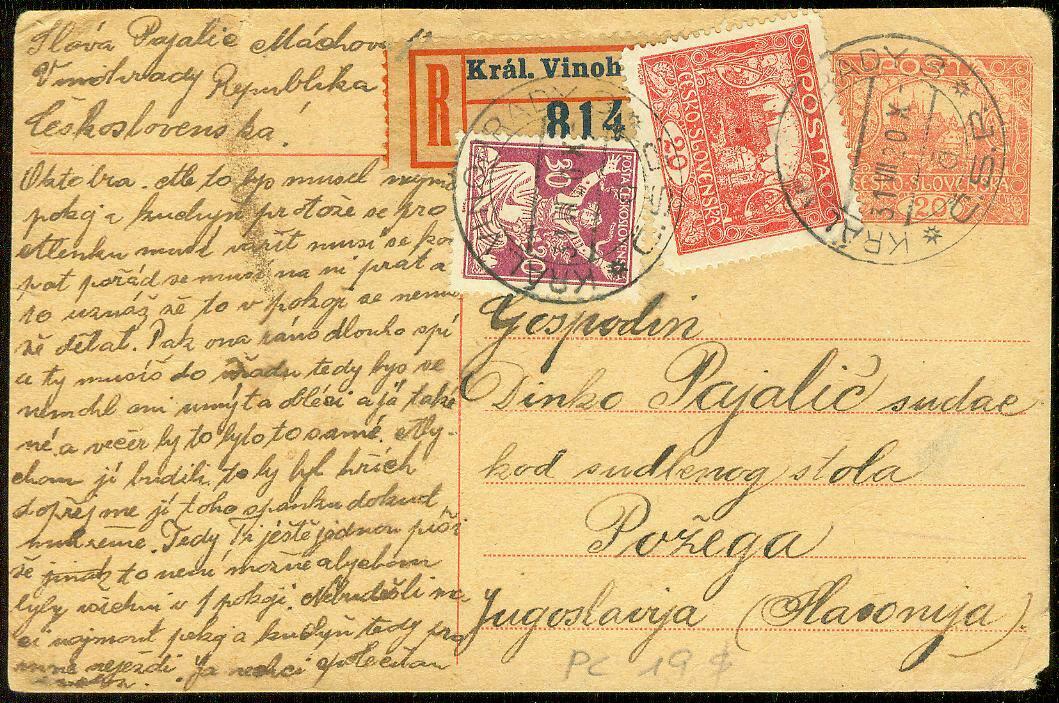 Sláva Pajalic Máchova
Vinohrady Republika
Československá.
R
Král. Vinoh
814
POŠTA
ČESKO-SLOVENSKÁ
20
POŠTA ČESKOSLOVENSKÁ
30 30
POŠTA
ČESKO-SLOVENSKÁ
20
KRÁL. VINOHRADY
31 VII 20
Č.S.R.
Oktobra. Ale to bys musel
pokoj a kuchyň protože se pro
Etlenku musí vařit musí se
pat pořád se musí na ni prát a
to uznáš že to v pokoji se
že dělat. Pak ona ráno dlouho spí
a ty musíš do úřadu tedy bys se
nemohl ani umýt a obléci a já také
né a večer by to bylo to samé. Aby-
chom jí budili, to by byl hřích
dopřejme jí toho spánku dokud
Tedy Ti ještě jednou píši
že jinak to není možné abychom
byly všichni v 1 pokoji. Nebudešli
ci najmout pokoj a kuchyň tedy
nejezdi. Ja nechci
Gospodin
Dinko Pajalič sudac
kod sudbenog stola
Požega
Jugoslavija (Slavonija)
PC 19